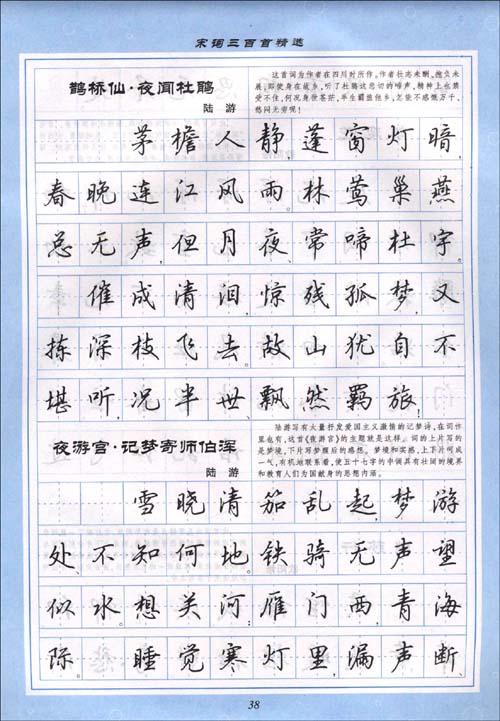 宋词三百首精选
鹊桥仙·夜闻杜鹃
陆 游
这首词为作者在四川时所作。作者壮志未酬，抱负未
展；即使身在故乡，听了杜鹃这悲切的啼声，精神上也禁
受不住，何况身世苍茫，半生羁旅他乡，怎能不感慨万千，
愁闷无穷呢！
茅檐人静，蓬窗灯暗，
春晚连江风雨。林莺巢燕
总无声，但月夜、常啼杜宇。
催成清泪，惊残孤梦，又
拣深枝飞去。故山犹自不
堪听，况半世、飘然羁旅！
夜游宫·记梦寄师伯浑
陆 游
陆游写有大量抒发爱国主义激情的记梦诗，在词作
里也有，这首《夜游宫》的主题就是这样。词的上片写的
是梦境，下片写梦醒后的感想。梦境和实感，上下片呵成
一气，有机地联系着，使五十七字的中调具有壮阔的境界
和教育人们为国献身的思想内涵。
雪晓清笳乱起，梦游
处、不知何地。铁骑无声望
似水。想关河：雁门西，青海
际。睡觉寒灯里，漏声断、
38